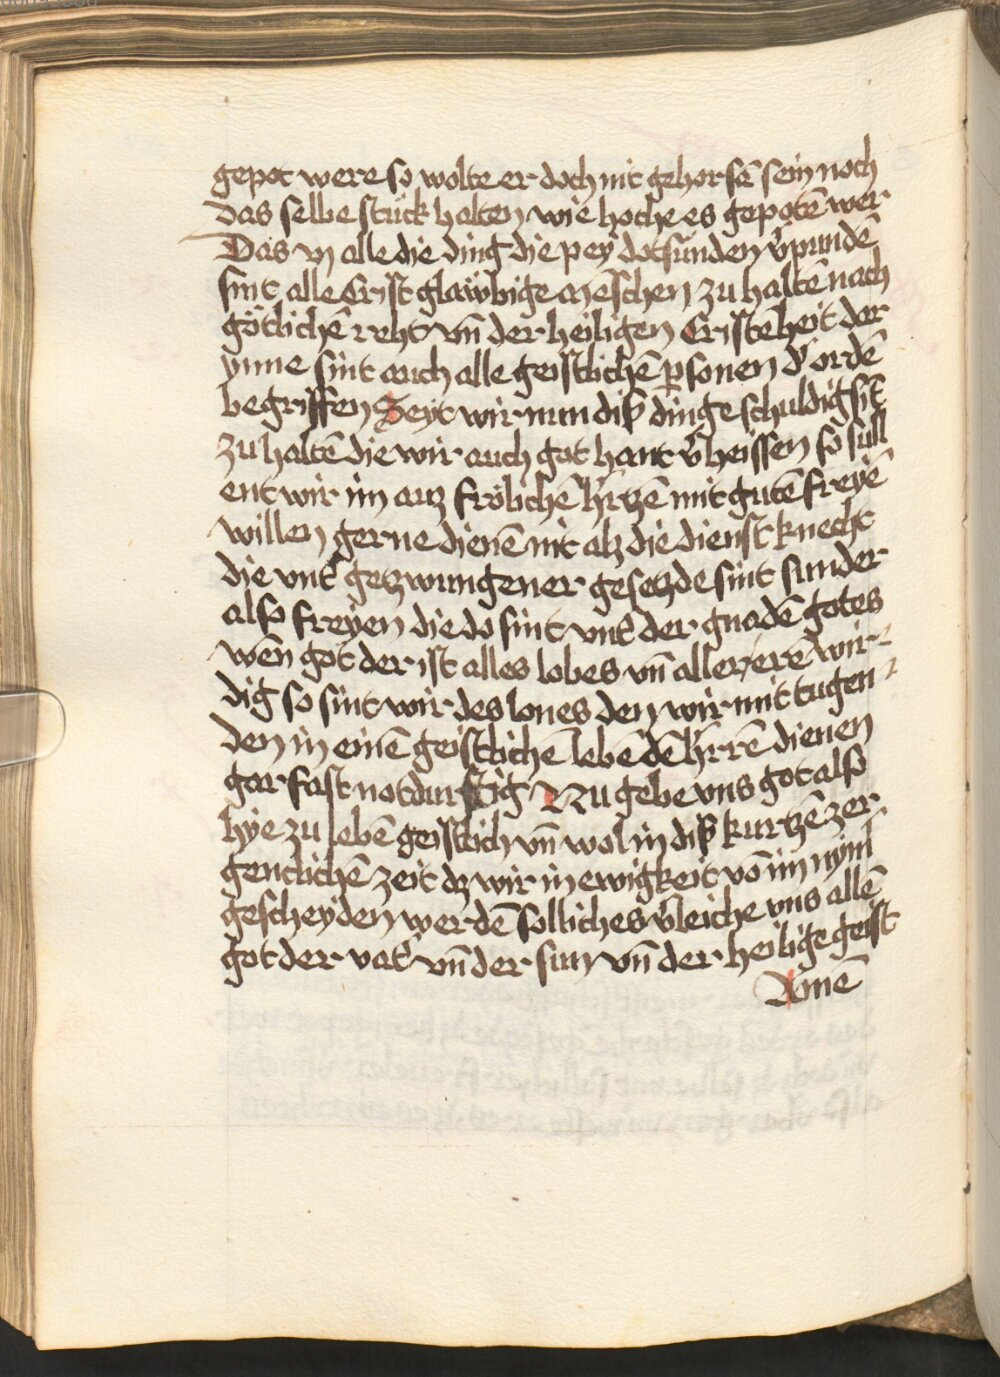 gepot were so wolte er doch nit gehorsā sein noch
das selbe stück halten wie hoche es gepotē wer
Das vj alle die ding die pey dotsünden v̄pundē
sint alle Crist glawbige meschen zu haltē nach
götlichē reht vn̄ der heiligen Cristēheit der
ynne sint auch alle geistlichē ꝑsonen d' ordē
begriffen Seyt wir nun diß dinge schuldig sīt
zu haltē die wir auch got hant v̄heissen so süll
ent wir im auz frölichē h'tzē mit gutē freyē
willen gerne dienē nit alz die dienst knecht
die vnt' getzwungener gesetzde sint sunder
also freyen die do sint vnt' der gnadē gotes
wēn got der ist alles lobes vn̄ aller erē wir-
dig so sint wir des lones den wir mit tugen-
den in einē geistlichē lebē dē h'rrē dienen
gar fast notdurftig Nu gebe vns got also
hye zu lebē geistlich vn̄ wol in diß kurtzē zer
genclichē zeit dz wir in ewigkeit vō im nym̄
gescheyden werdē solliches v̄leiche vns allē
got der vat' vn̄ der sun vn̄ der heilige geist
Amē